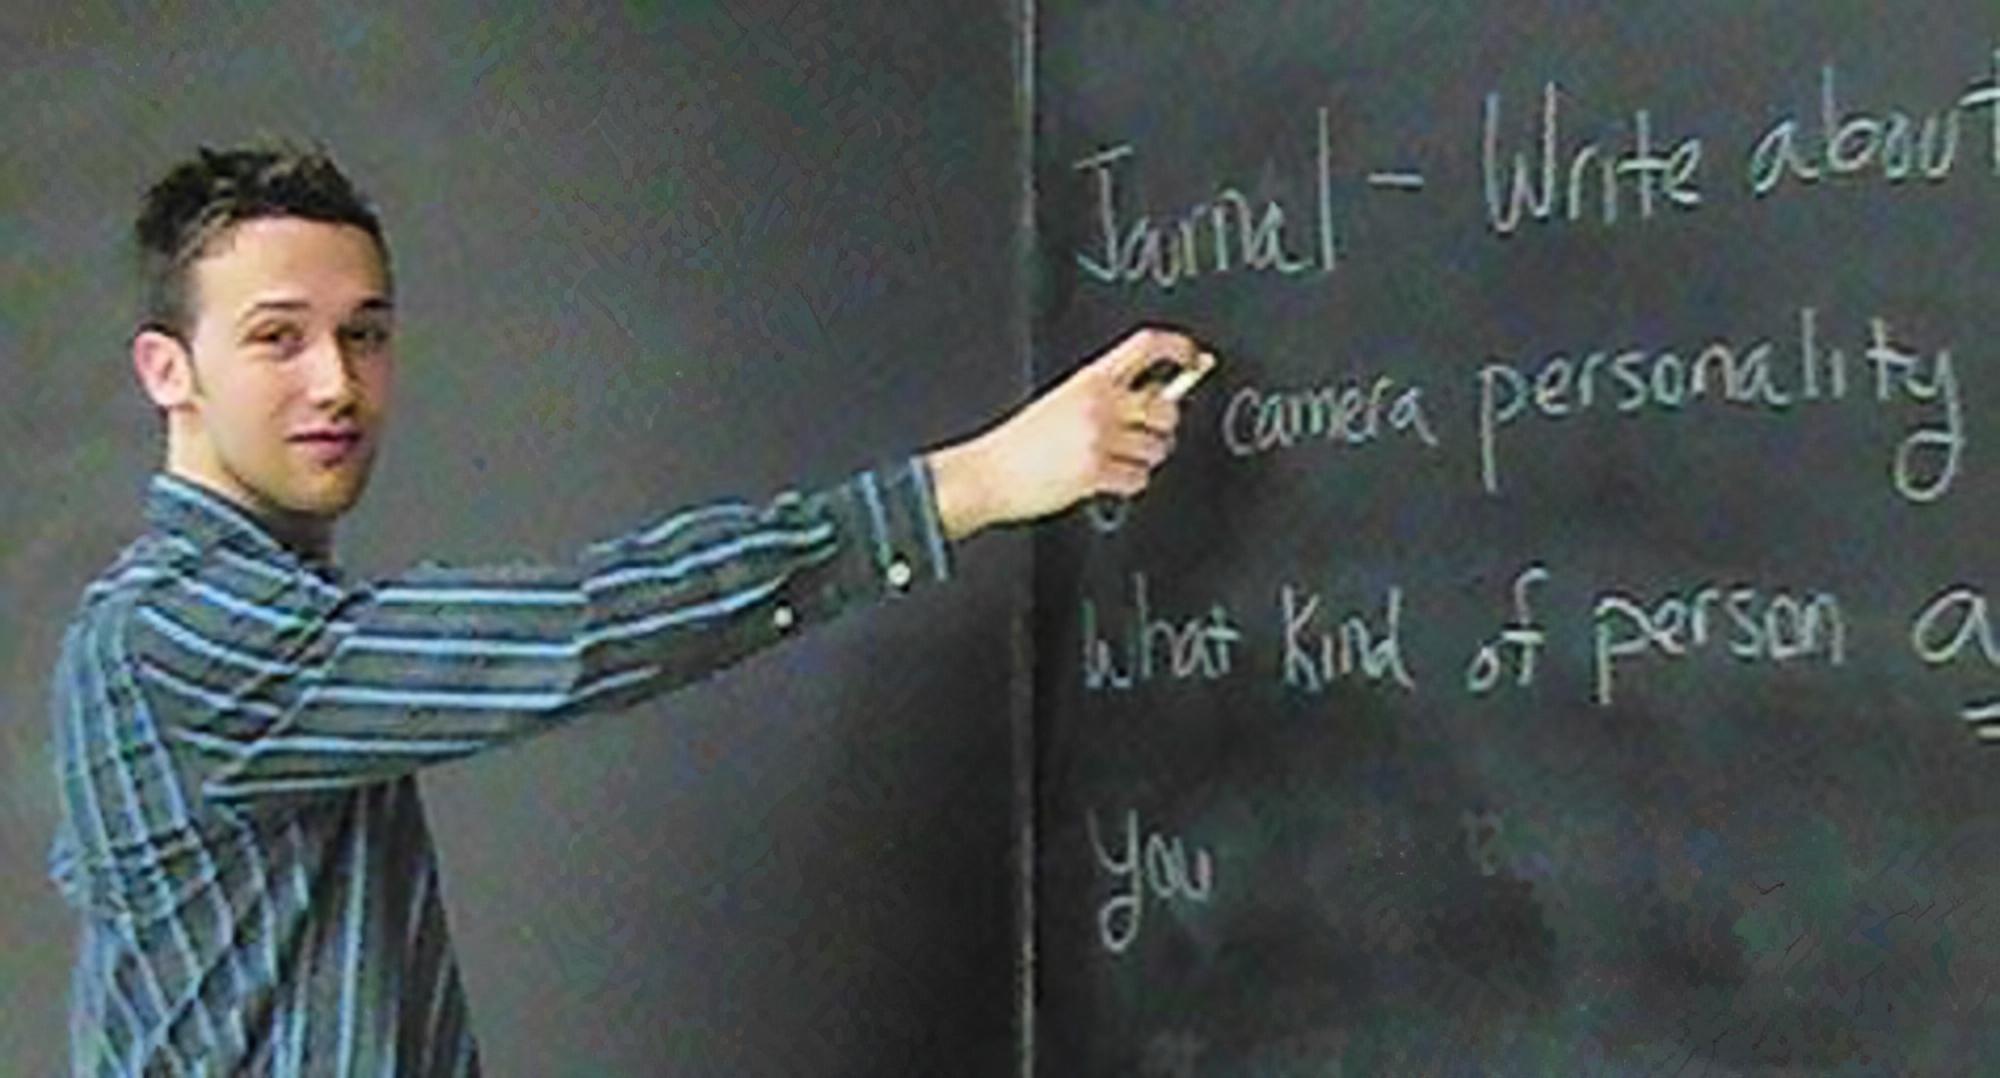 Journal - Write about
camera personality
What kind of person a
you